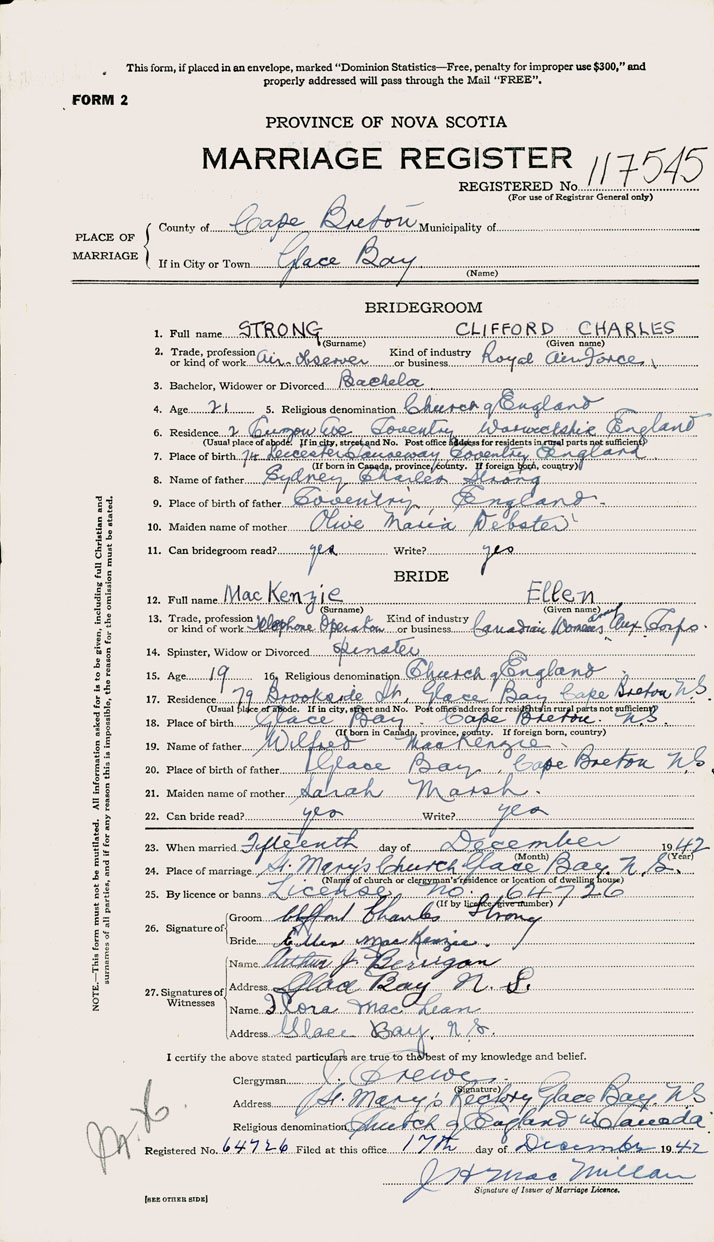 This form, if placed in an envelope, marked "Dominion Statistics—Free, penalty for improper use $300," and
properly addressed will pass through the Mail "FREE".
FORM 2
PROVINCE OF NOVA SCOTIA
MARRIAGE REGISTER
REGISTERED No. 117545
(For use of Registrar General only)
PLACE OF MARRIAGE
County of Cape Breton Municipality of
If in City or Town Glace Bay
(Name)
BRIDEGROOM
1. Full name STRONG CLIFFORD CHARLES
(Surname) (Given name)
2. Trade, profession or kind of work Air Observer Kind of industry or business Royal Air Force
3. Bachelor, Widower or Divorced Bachelor
4. Age 21 5. Religious denomination Church of England
6. Residence 2 Ave Coventry England
(Usual place of abode. If in city, street and No. Post office address for residents in rural parts not sufficient)
7. Place of birth 74 Leicester Causeway Coventry England
(If born in Canada, province, county. If foreign born, country)
8. Name of father Sydney Charles Strong
9. Place of birth of father Coventry, England
10. Maiden name of mother Olive Maria
11. Can bridegroom read? yes Write? yes
BRIDE
12. Full name MacKenzie Ellen
(Surname) (Given name)
13. Trade, profession or kind of work Telephone Operator Kind of industry or business Canadian Womens Army Corps.
14. Spinster, Widow or Divorced Spinster
15. Age 19 16. Religious denomination Church of England
17. Residence 79 Brookside St. Glace Bay Cape Breton N.S.
(Usual place of abode. If in city, street and No. Post office address for residents in rural parts not sufficient)
18. Place of birth Glace Bay. Cape Breton. N.S.
(If born in Canada, province, county. If foreign born, country)
19. Name of father Wilfred MacKenzie
20. Place of birth of father Glace Bay, Cape Breton N.S.
21. Maiden name of mother Sarah Marsh.
22. Can bride read? yes Write? yes
23. When married Fifteenth day of December 1942
(Month) (Year)
24. Place of marriage St. Mary's Church Glace Bay. N.S.
(Name of church or clergyman's residence or location of dwelling house)
25. By licence or banns License No. 64726
(If by licence give number)
26. Signature of
Groom Clifford Charles Strong
Bride Ellen MacKenzie.
27. Signatures of Witnesses
Name Arthur J. Berrigan
Address Glace Bay N.S.
Name Flora MacLean
Address Glace Bay. N.S.
I certify the above stated particulars are true to the best of my knowledge and belief.
Clergyman
(Signature)
Address St. Mary's Rectory Glace Bay. N.S.
Religious denomination Church of England in Canada
Registered No. 64726 Filed at this office 17th day of December 1942
J H MacMillan
Signature of Issuer of Marriage Licence.
[SEE OTHER SIDE]
NOTE.—This form must not be mutilated. All information asked for is to be given, including full Christian and
surnames of all parties, and if for any reason this is impossible, the reason for the omission must be stated.